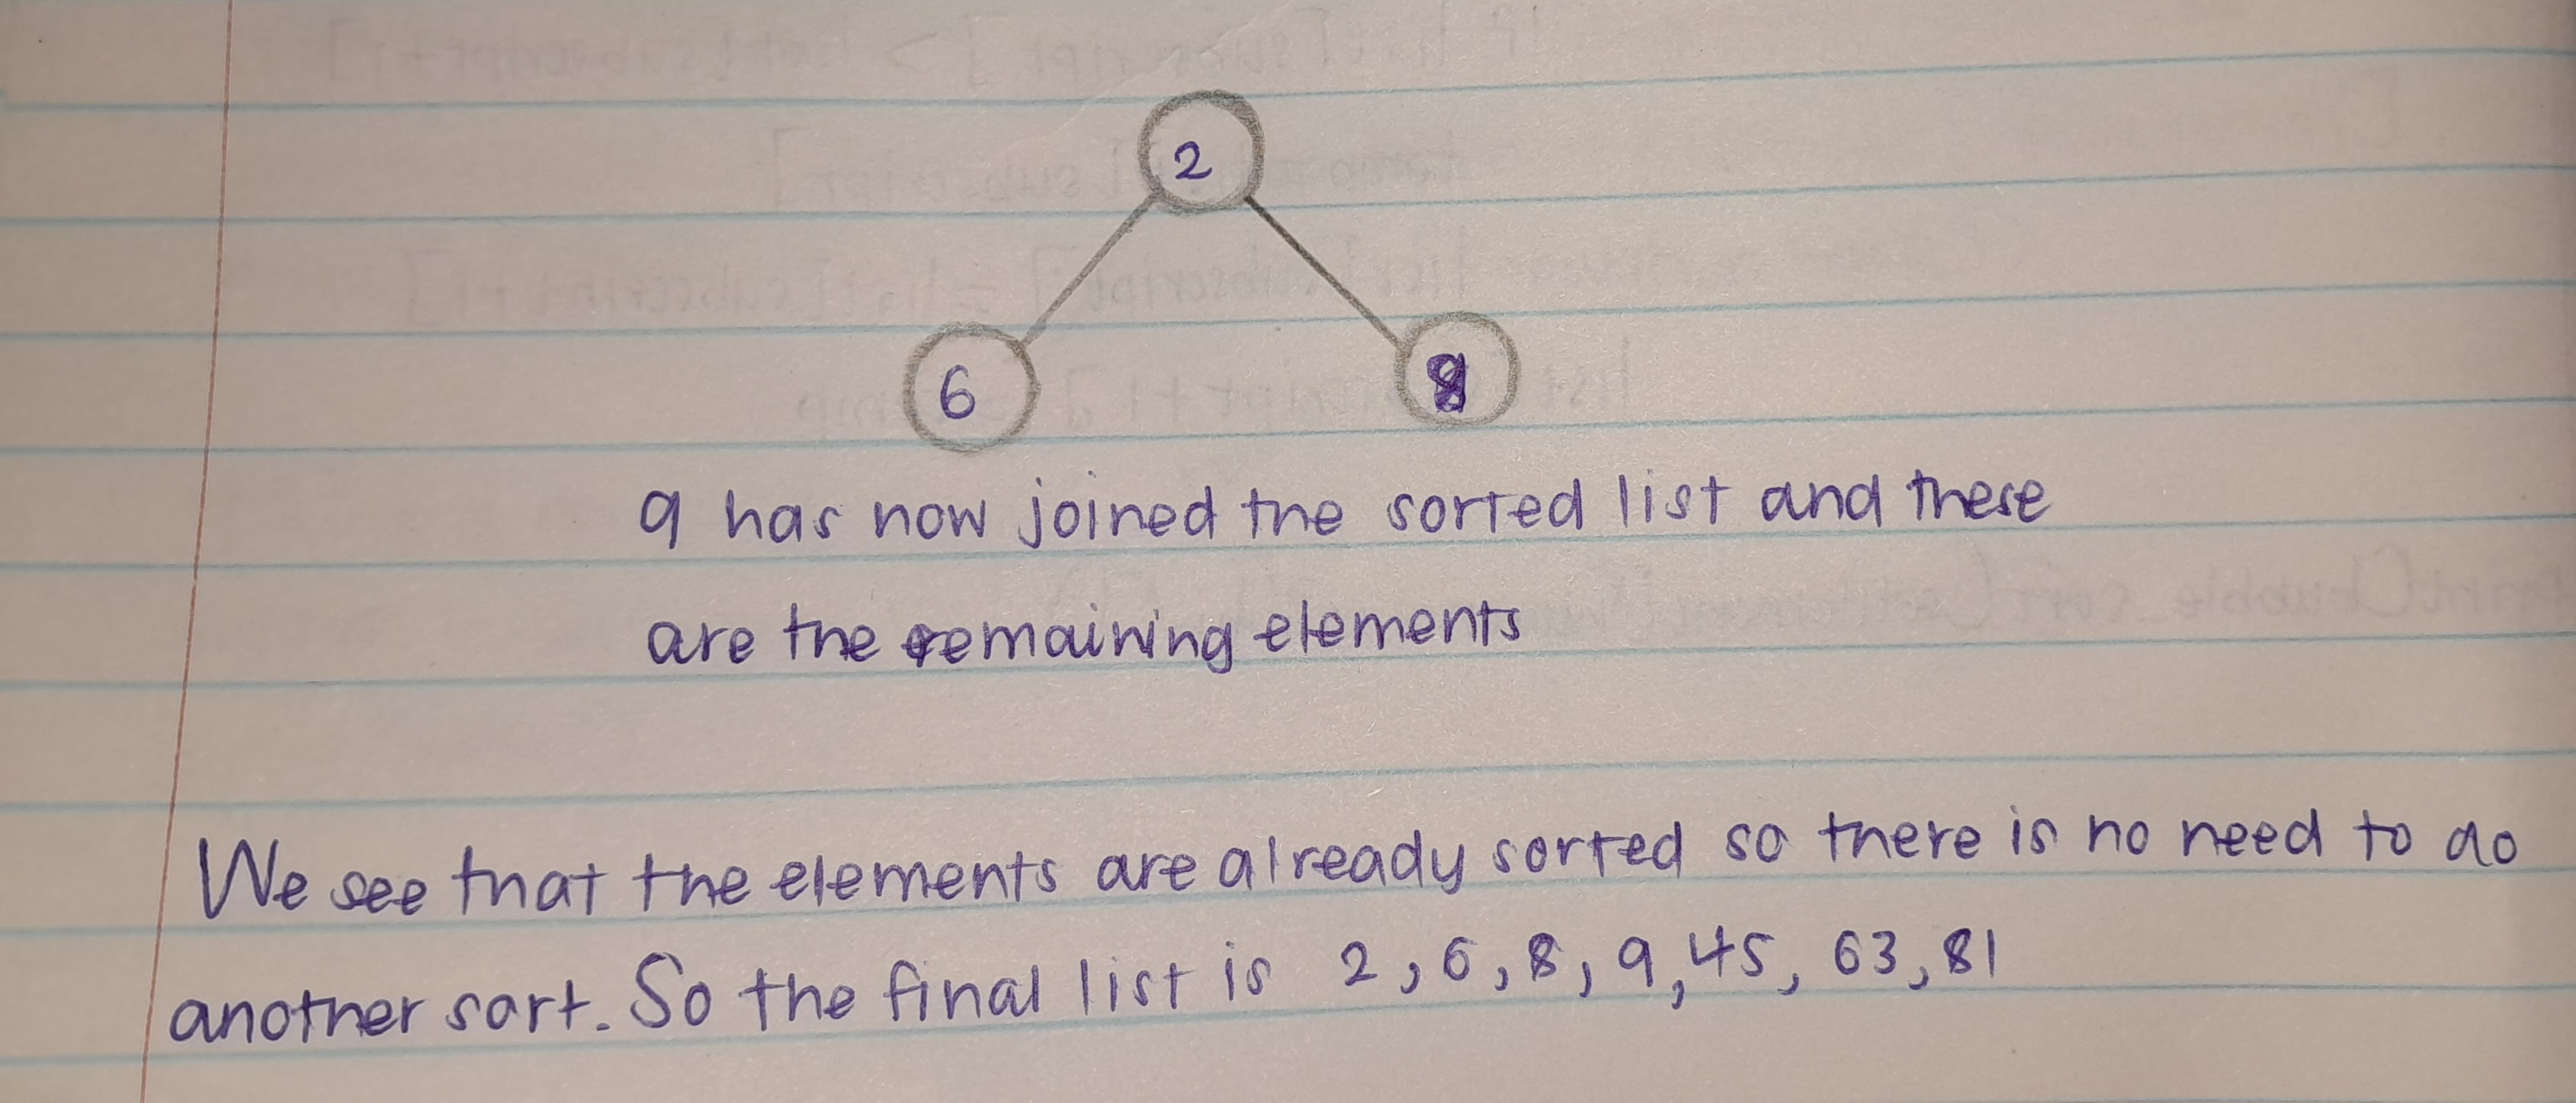 2
6
8
9 has now joined the sorted list and these
are the remaining elements
We see that the elements are already sorted so there is no need to do
another sort. So the final list is 2, 6, 8, 9, 45, 63, 81